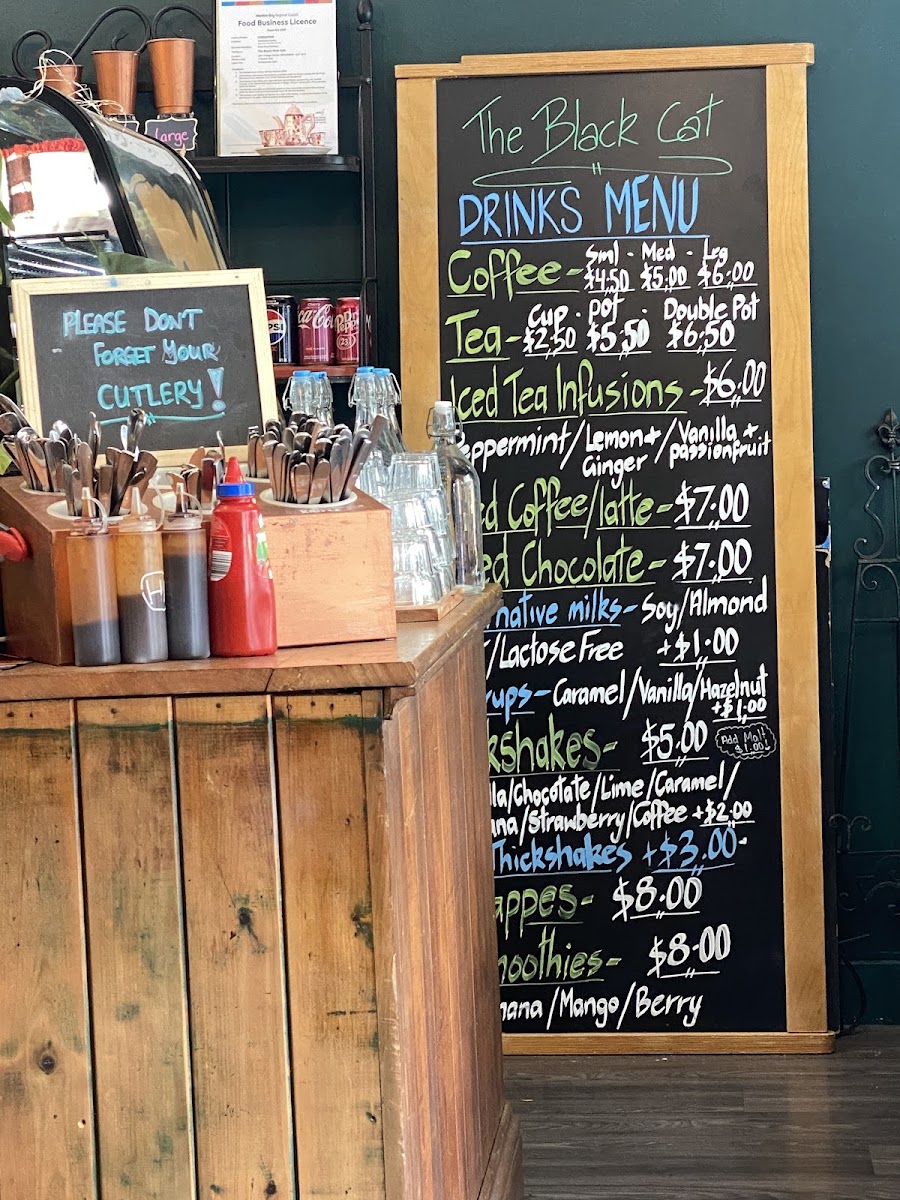 Food Business Licence
large
The Black Cat
DRINKS MENU
Sml - Med - Lrg
Coffee - $4.50 $5.00 $6.00
Cup - pot - Double Pot
Tea - $2.50 $5.50 $6.50
Iced Tea Infusions - $6.00
eppermint / Lemon + Ginger / Vanilla + passionfruit
ed Coffee/latte - $7.00
ed Chocolate - $7.00
native milks - Soy/Almond
/Lactose Free +$1.00
ups - Caramel/Vanilla/Hazelnut
+$1.00
kshakes - $5.00
Add Malt
$1.00!
lla/Chocotate/Lime/Caramel/
ana/Strawberry/Coffee +$2.00
Thickshakes +$3.00-
appes - $8.00
moothies - $8.00
nana/Mango/Berry
PLEASE DON'T
FORGET YOUR
CUTLERY!
PSI
Coca-Co
Dr Pepper
23